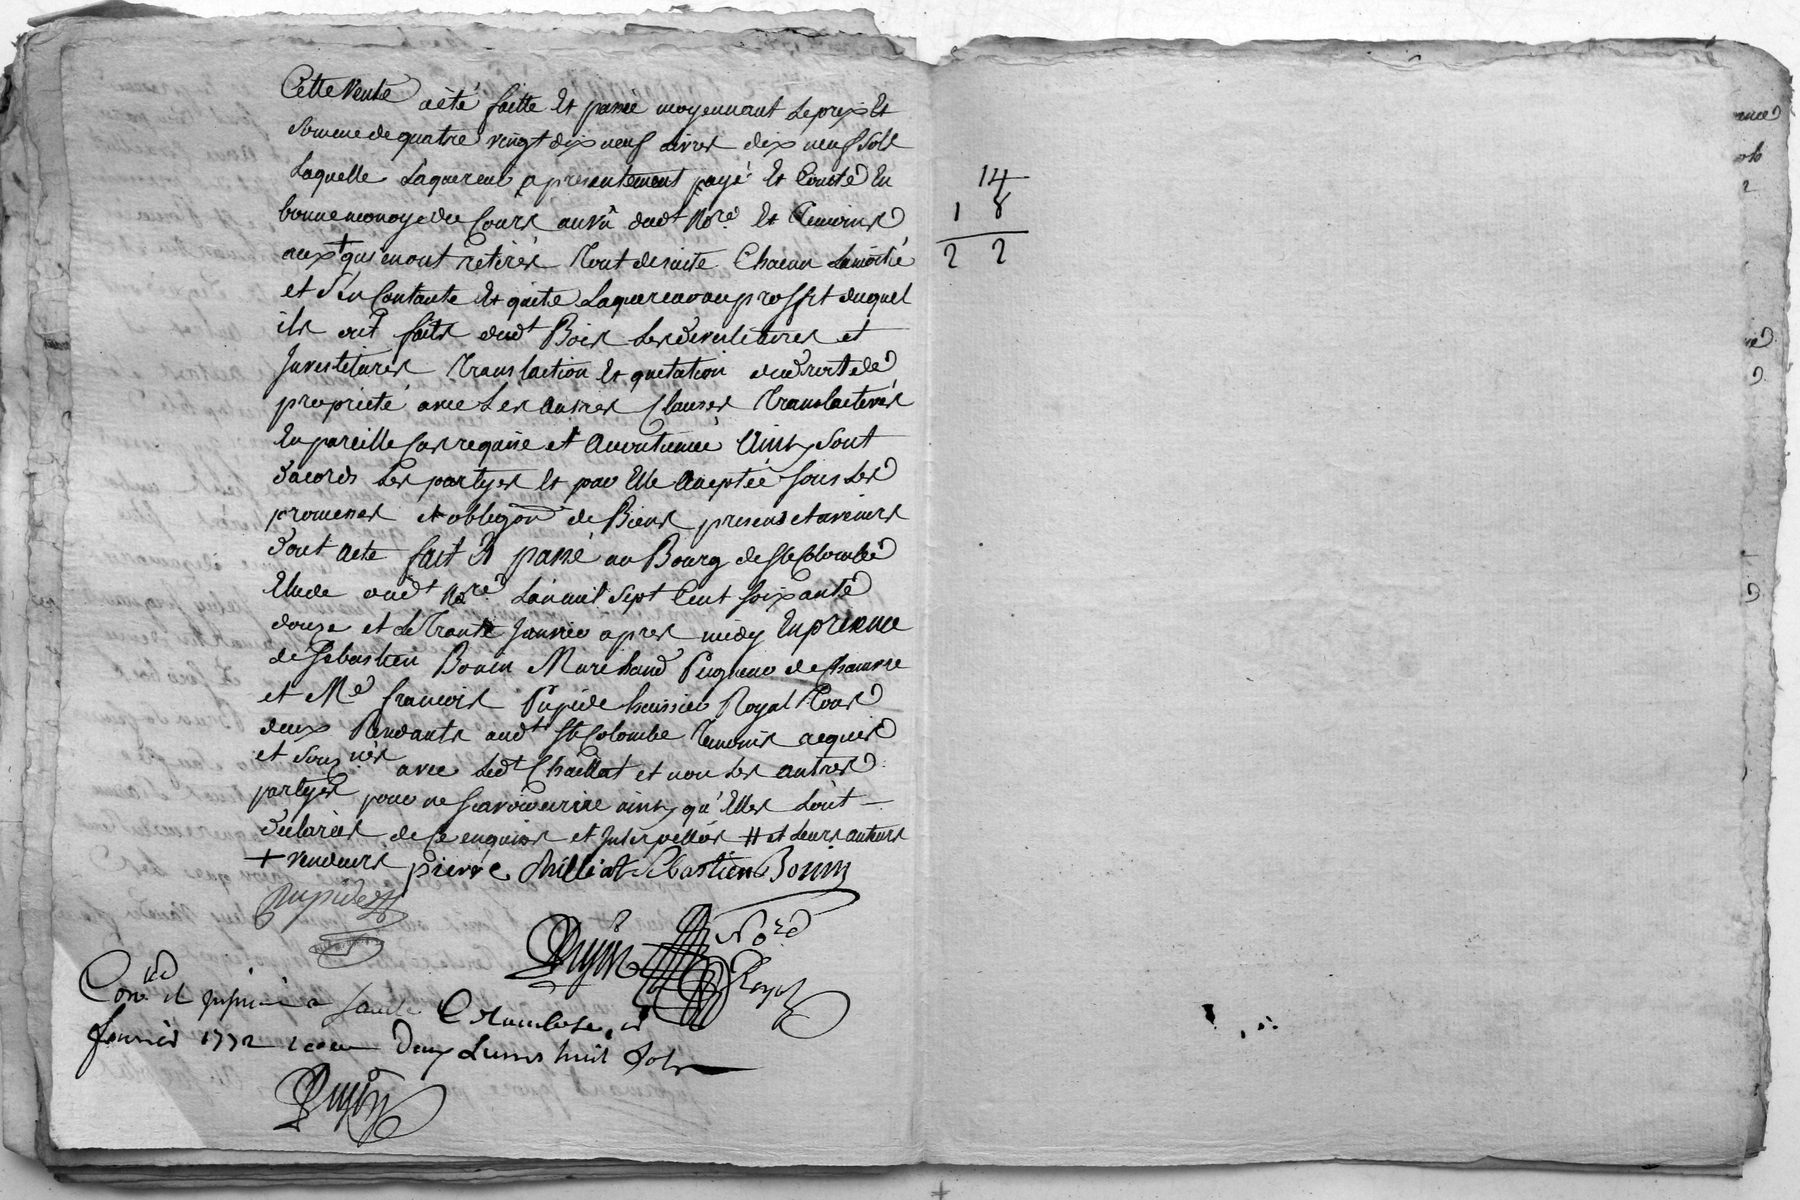 Cette vente a été faitte et passée moyennant le prix et
somme de quatre vingt dix neuf livres dix neuf sols
laquelle laquereur a présentement payé et Compté en
bonne monoye du Cours au vû dudt Nore. et temoins
aux + qui en ont retirés tout de suite Chacun la moitié
et s'en Contante et quite laquereur au proffit duquel
ils ont faits dudt Bois les devestitures et
Investitures translaction et quetation du droit de
proprieté avec les autres Clauses translatives
en pareille Cas requise et acoutumée ainsy sont
d'acords les partyes et par elle aceptée sous les
promesses et obligons de Biens presens et avenirs
dont acte fait et passé au Bourg de Ste Colombe
etude dudt Nore. l'an mil sept Cent soixante
douze et le trante Janvier apres midy en presence
de Sebastien Bonin Marchand Peigneur de Chanvre
et Me françois Pupide huissier Royal tous
deux Rendants audt Ste Colombe temoins requis
et sousnés avec ledt Chaillat et non les autres
partyes pour ne scavoir ecrire ainsy qu'elles l'ont
déclarées de Ce enquises et Interpellées # et leurs auteurs
+ vendeurs pierre Sebastien Bonin
Pupide
Nore
Royal
Conlé et a Sainte Colombe, le
fevrier 1772 recu Deux Livres huit sols
14
1 8
2 2